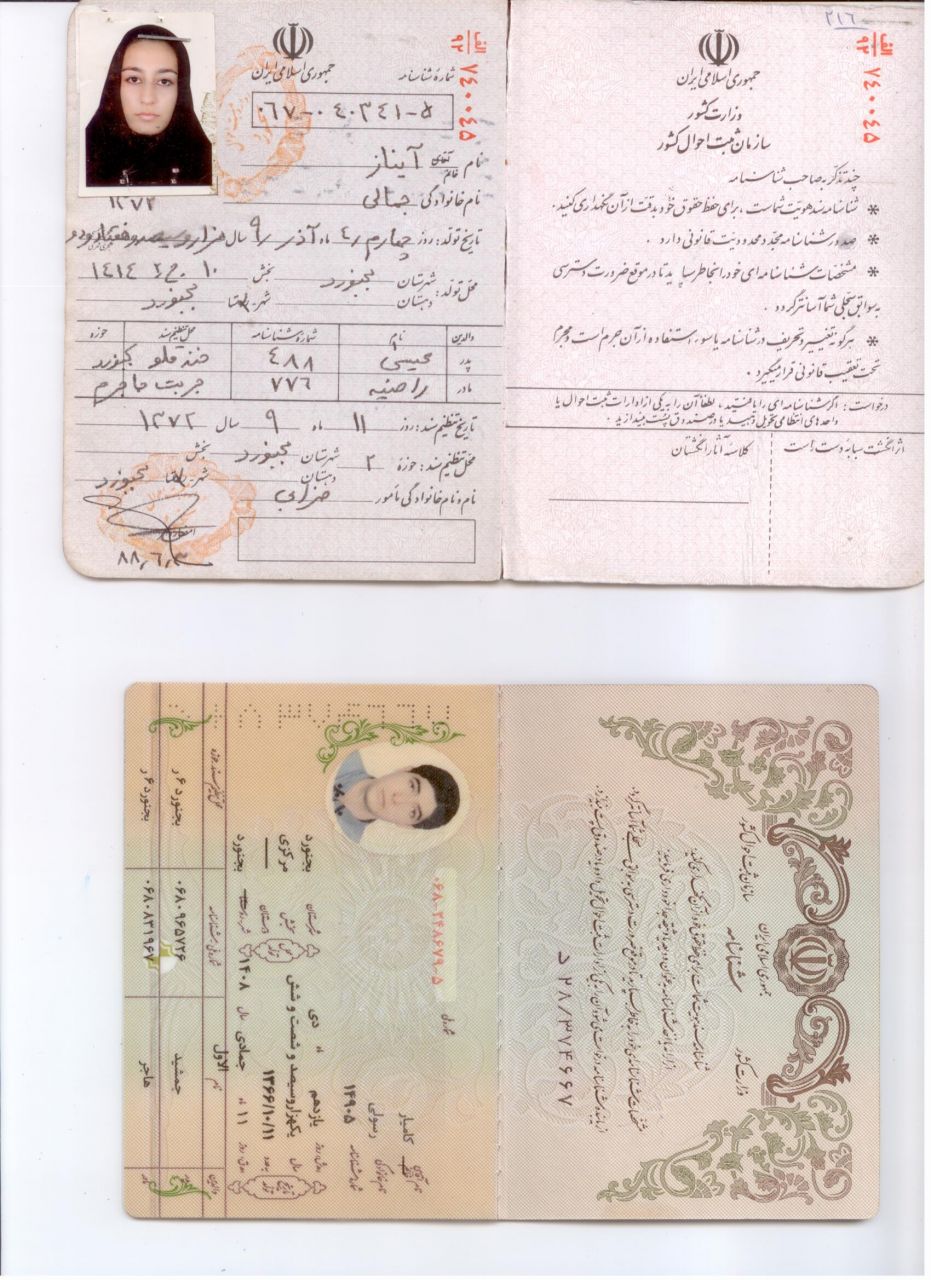 ۲۱۶
الف
۹۲
۷۴۰۰۴۵
جمهوری اسلامی ایران
وزارت کشور
سازمان ثبت احوال کشور
چند تذکر به صاحب شناسنامه
* شناسنامه سند هویت شماست، برای حفظ حقوق خود بدقت از آن نگهداری کنید.
* صدور شناسنامه مجدد محدودیت قانونی دارد.
* مشخصات شناسنامه ای خود را بخاطر بسپارید تا در موقع ضرورت دسترسی
به سوابق سجلی شما آسانتر گردد.
* هرگونه تغییر و تحریف در شناسنامه یا سوء استفاده از آن جرم است و مجرم
تحت تعقیب قانونی قرار میگیرد.
درخواست: اگر شناسنامه ای را یافتید، لطفا آن را به یکی از ادارات ثبت احوال یا
واحدهای انتظامی تحویل دهید یا در صندوق پست بیندازید.
اثر انگشت سبابه دست است
کلاسه آثار انگشتان
الف
۹۲
۷۴۰۰۴۵
جمهوری اسلامی ایران
شماره شناسنامه
۰۶۷-۰۴۰۳۴۱-۵
نام آقای خانم آیناز
نام خانوادگی جمالی
۱۳۷۲
تاریخ تولد: روز چهارم ۴ ماه آذر ۹ سال هزار و سیصد و هفتاد و دو
محل تولد: شهرستان بجنورد بخش
دهستان شهر بجنورد
۱۴۱۴
والدین نام شماره شناسنامه محل تنظیم سند حوزه
پدر عیسی ۴۸۸
مادر راضیه ۷۷۶
تاریخ تنظیم سند: روز ۱۱ ماه ۹ سال ۱۳۷۲
محل تنظیم سند: حوزه ۲ شهرستان بجنورد بخش
دهستان شهر بجنورد
نام و نام خانوادگی مأمور
۸۸/۶/۳
جمهوری اسلامی ایران
وزارت کشور
سازمان ثبت احوال کشور
شناسنامه
د ۲۸/۳۷۴۶۶۷
۰۶۸-۲۴۸۶۷۹-۵
نام کامیار
نام خانوادگی رسولی
شماره شناسنامه ۱۴۹۰۵
روز یازدهم ماه دی
سال یکهزار و سیصد و شصت و شش
۱۳۶۶/۱۰/۱۱
روز ۱۱ ماه جمادی الاول سال ۱۴۰۸
تاریخ تولد
محل تولد
شهرستان بجنورد
بخش مرکزی
دهستان —
شهر بجنورد
والدین نام
پدر جمشید ۰۶۸۰۹۶۵۷۲۶ بجنورد ۶ ر
مادر هاجر ۰۶۸۰۸۳۱۹۶۷ بجنورد ۶ ر